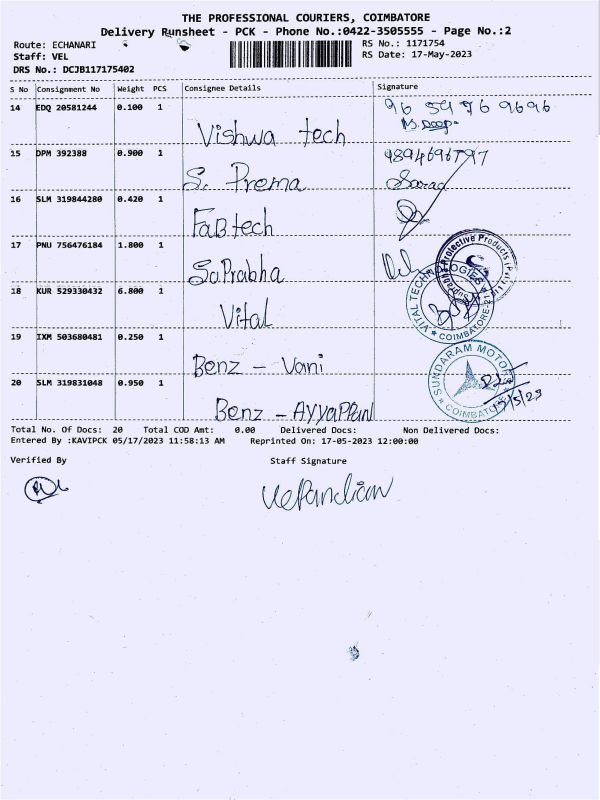 THE PROFESSIONAL COURIERS, COIMBATORE
Delivery Runsheet - PCK - Phone No.:0422-3505555 - Page No.:2
Route: ECHANARI
RS No.: 1171754
Staff: VEL
RS Date: 17-May-2023
DRS No.: DCJB117175402
S No Consignment No Weight PCS Consignee Details Signature
14 EDQ 20581244 0.100 1
Vishwa tech
15 DPM 392388 0.900 1
S. Prema
16 SLM 319844280 0.420 1
FaB tech
17 PNU 756476184 1.800 1
SaPrabha
18 KUR 529330432 6.800 1
Vital
19 IXM 503680481 0.250 1
Benz - Vani
20 SLM 319831048 0.950 1
Benz - AyyaPPan
VITAL TECHNOLOGIES
COIMBATORE-21
Protective Products (P) Ltd
SUNDARAM MOTORS
COIMBATORE
17/5/23
Total No. Of Docs: 20 Total COD Amt: 0.00 Delivered Docs: Non Delivered Docs:
Entered By :KAVIPCK 05/17/2023 11:58:13 AM Reprinted On: 17-05-2023 12:00:00
Verified By Staff Signature